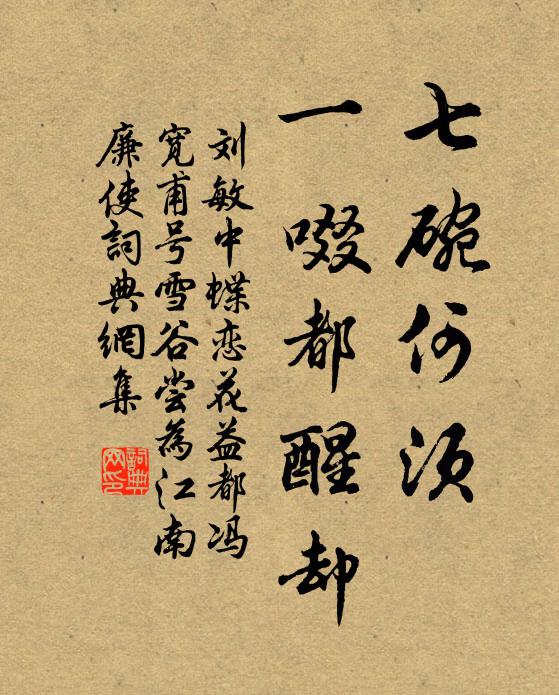 七碗何须
一啜都醒却
刘敏中蝶恋花益都冯
宽甫号雪谷尝為江南
廉使詞典網集
詞典网印